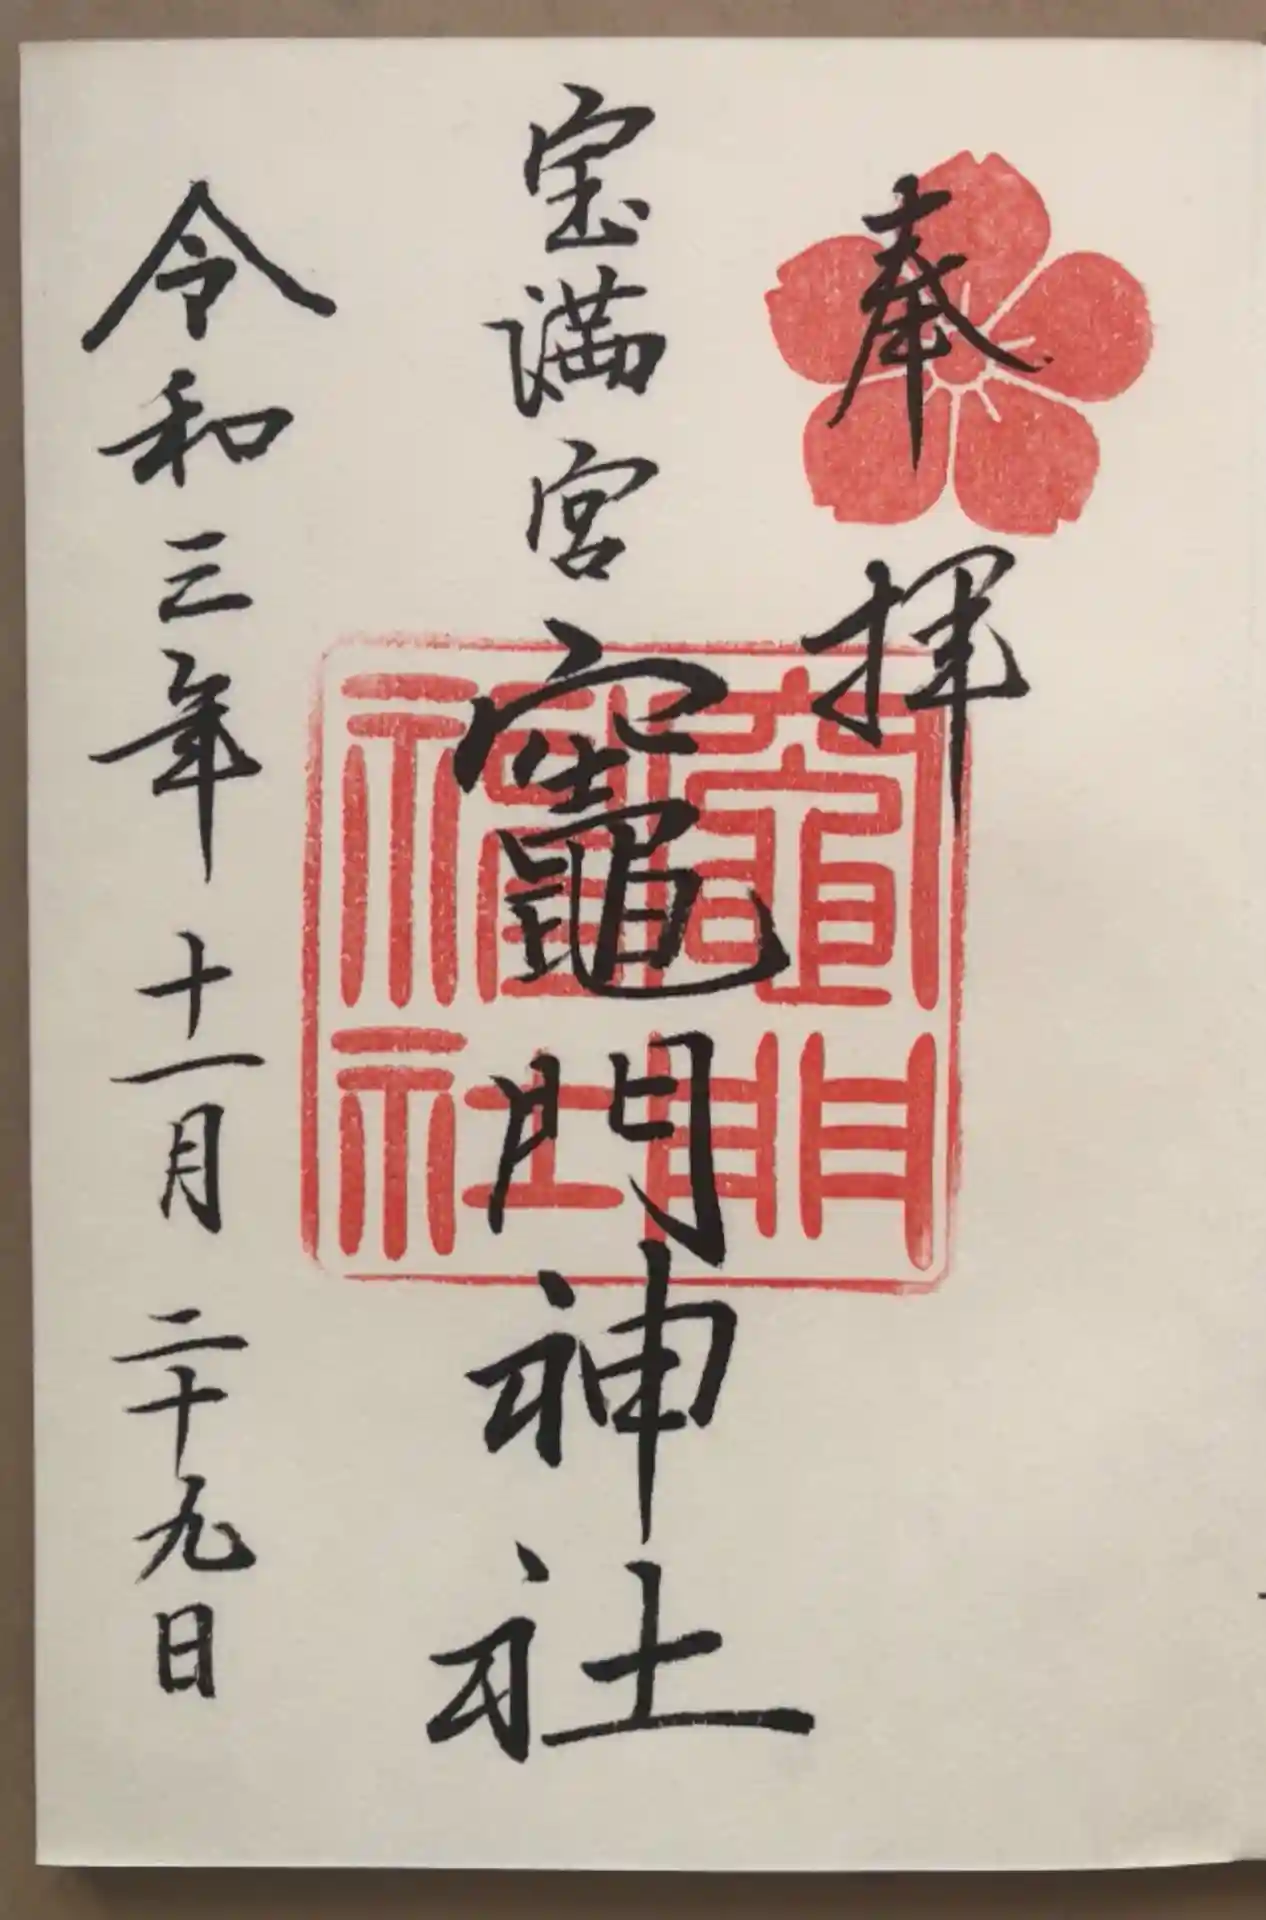 奉拝
宝満宮竈門神社
令和三年十一月二十九日
竈門
神社